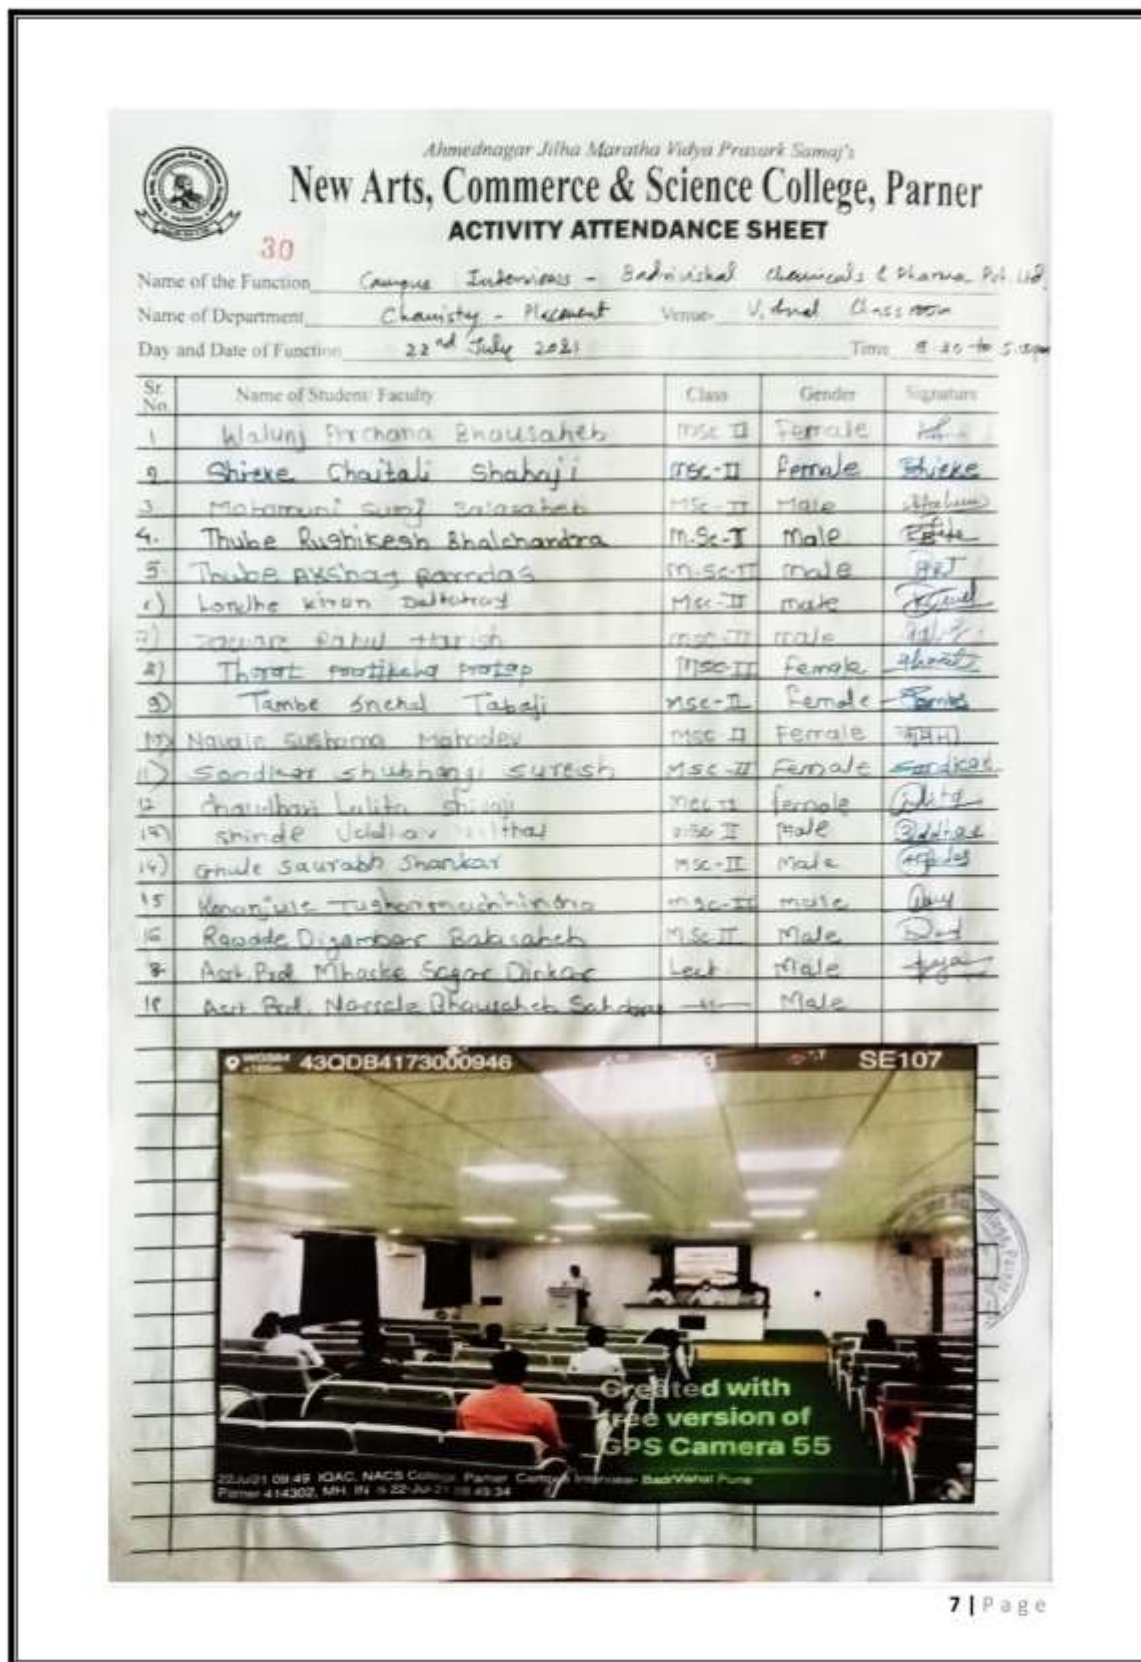 Ahmednagar Jilha Maratha Vidya Prasark Samaj's
New Arts, Commerce & Science College, Parner
ACTIVITY ATTENDANCE SHEET
30
Name of the Function Campus Interviews - Badrivishal Chemicals & Pharma Pvt. Ltd.
Name of Department Chemistry - Placement Venue- Virtual Classroom
Day and Date of Function 22nd July 2021 Time to
Sr. No. Name of Student/ Faculty Class Gender Signature
1 Walunj Archana Bhausaheb MSC II Female
2 Shirke Chaitali Shahaji MSC-II Female Shirke
3 Mahamuni Balasaheb MSc-II Male
4. Thube Rushikesh Bhalchandra M.Sc-I Male
5 Thube Akshay Ramdas M.SC-II male
6) Londhe Kiran Dattatray Msc-II male
7) Rahul Harish MSC-II male
8) Thorat Pratiksha Pratap MSC-II Female Thorat
9) Tambe Snehal Tabaji MSC-II Female
10) Navale Sushama Mahadev MSC II Female
11) Sandkar Shubhangi Suresh MSC-II Female Sandkar
12 Chaudhari Lalita Shivaji MSC II female
13) Shinde Uddhav Vitthal MSC II Male
14) Ghule Saurabh Shankar MSC-II Male
15 Tushar Machhindra MSC-II male
16 Rawade Digambar Balasaheb M.Sc II Male
Asst. Prof. Mhaske Sagar Dinkar Lect Male
18 Asst. Prof. Bhausaheb —"— Male
WGS84 43QDB4173000946 SE107
Created with
free version of
GPS Camera 55
22Jul21 09:49 IQAC, NACS College, Parner Campus Interview- BadriVishal Pune
Parner 414302, MH, IN 22-Jul-21 09:49:34
7 | Page